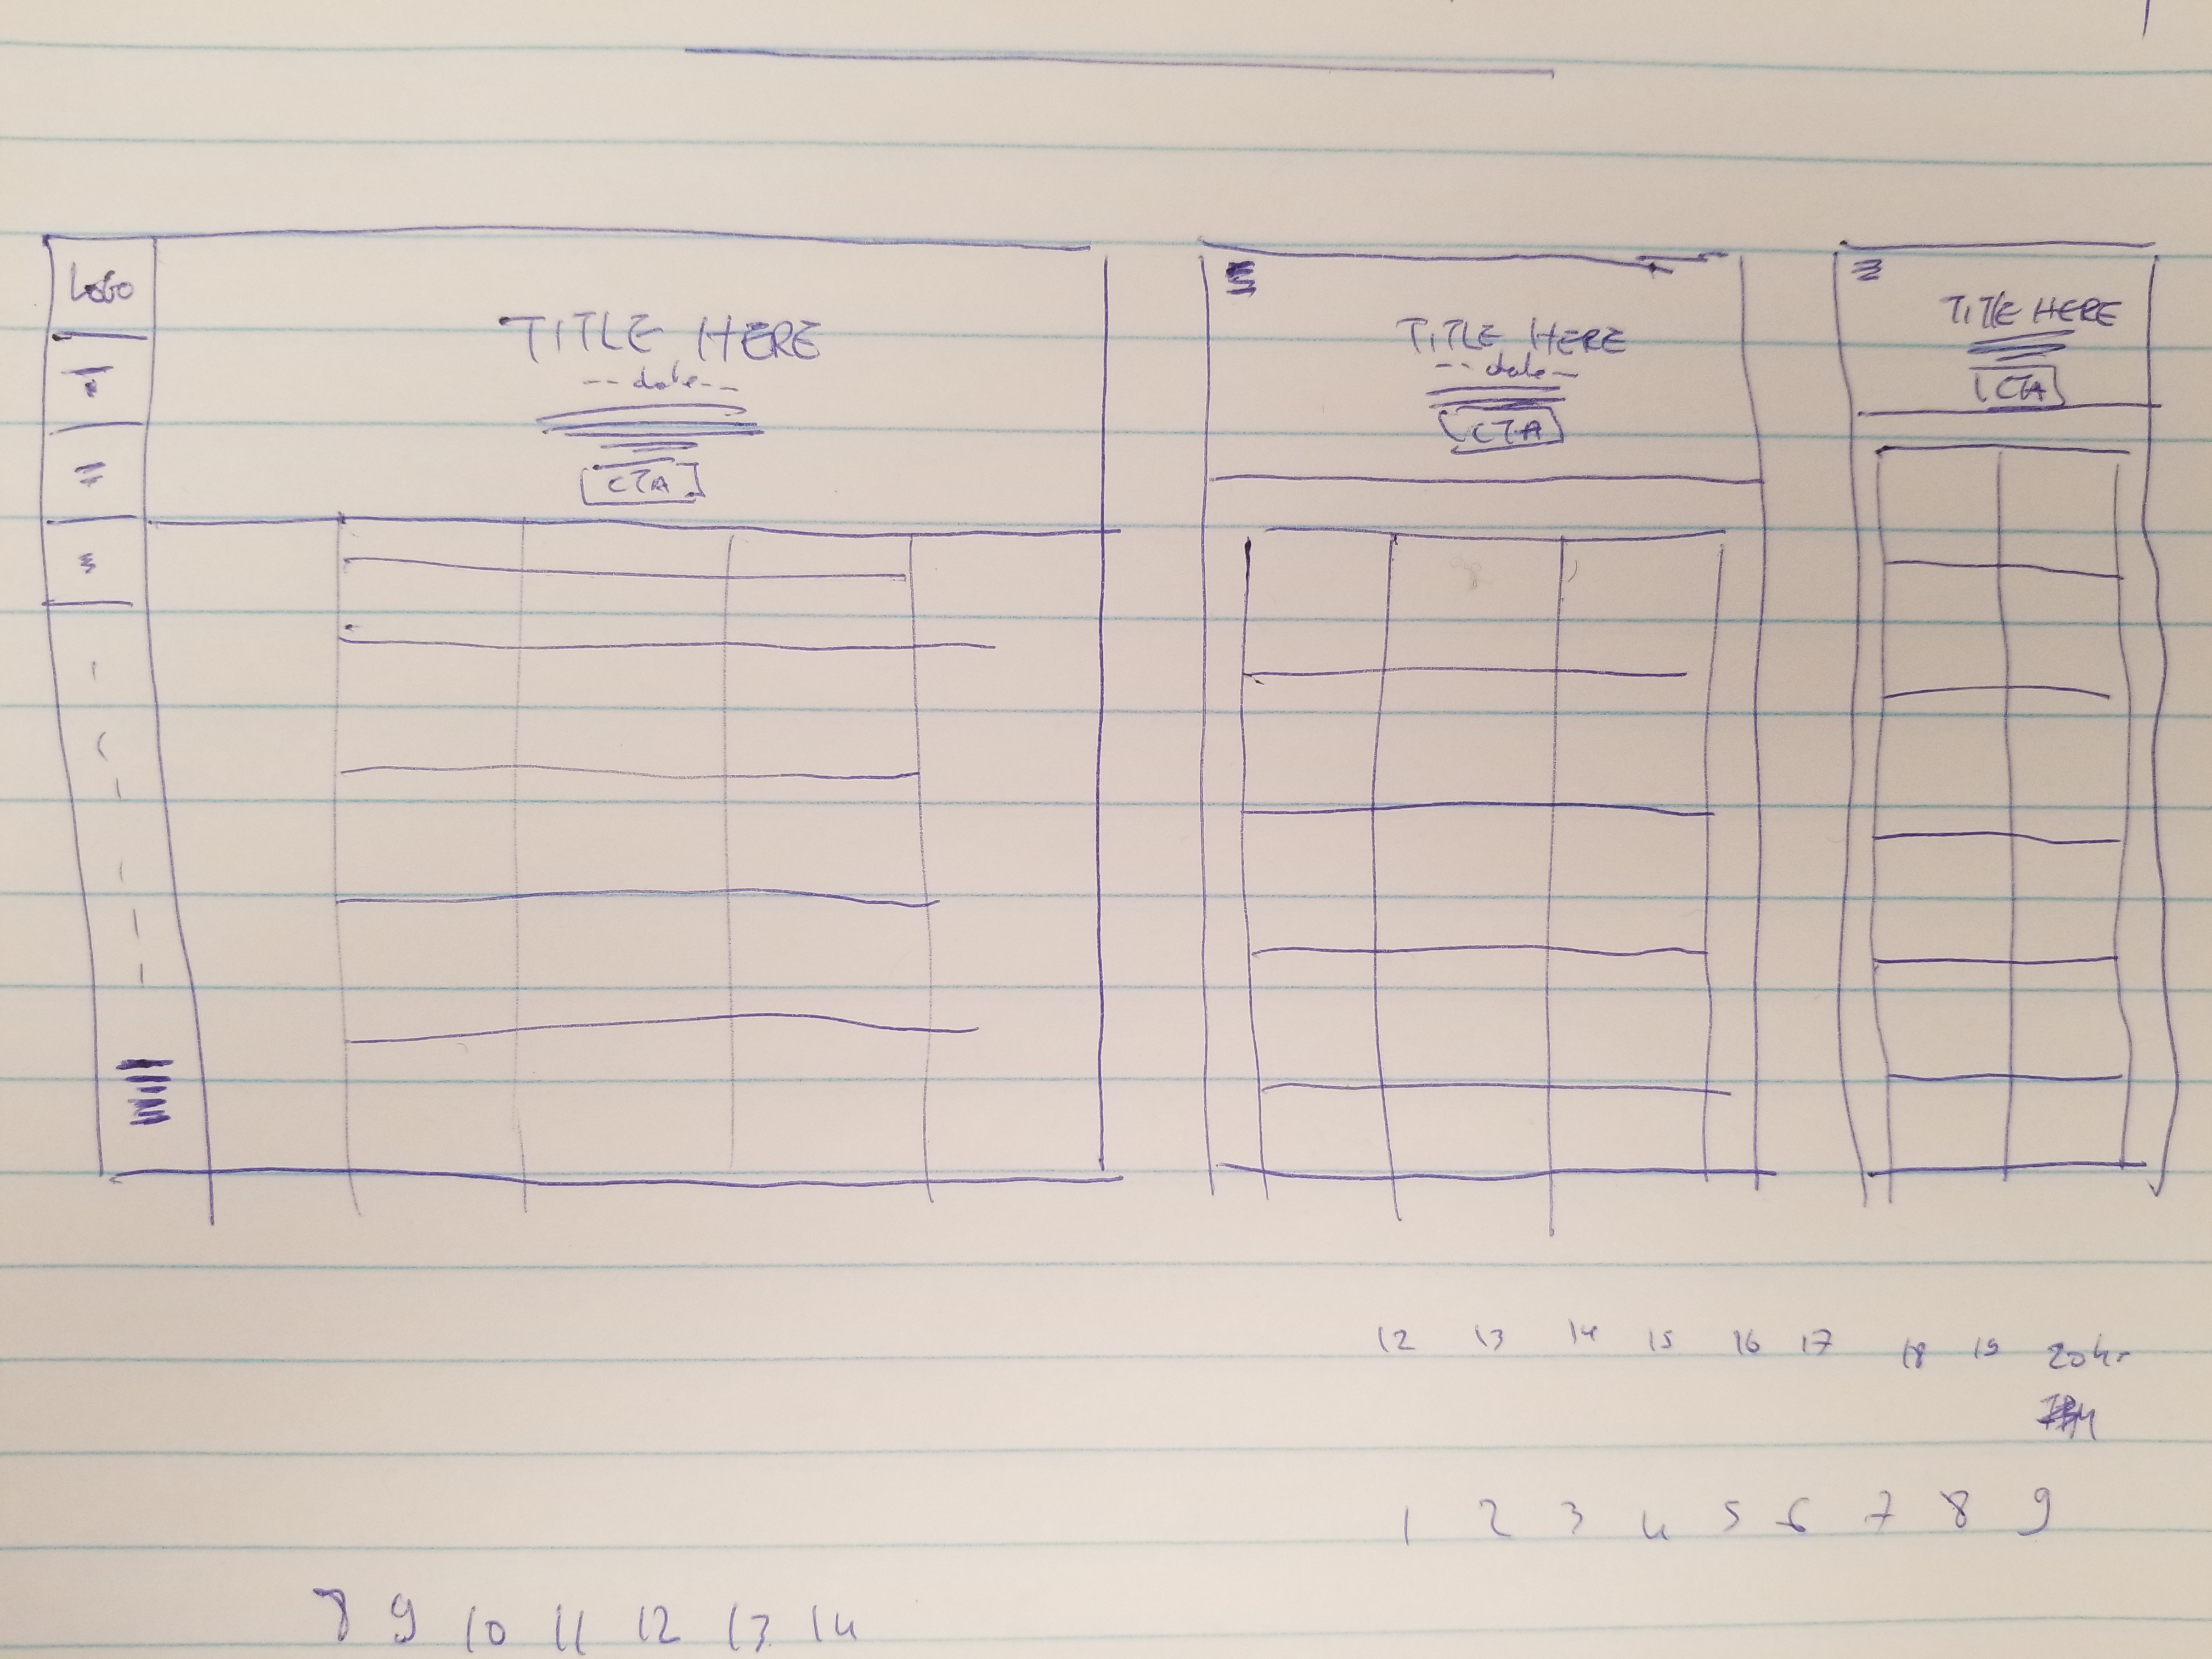 LOGO
TITLE HERE
-- date --
CTA
TITLE HERE
-- date --
CTA
TITLE HERE
CTA
12 13 14 15 16 17 18 19 20hr
1 2 3 4 5 6 7 8 9
8 9 10 11 12 13 14